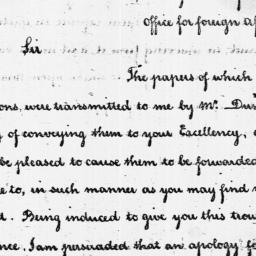 Office for foreign Af
Sir
The papers of which
ons, were transmitted to me by Mr. Du
of conveying them to your Excellency,
be pleased to cause them to be forwarded
e to, in such manner as you may find
d. Being induced to give you this trou
nce, I am persuaded that an apology fo